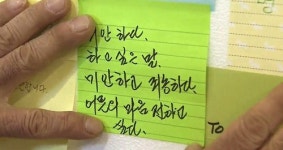 미안하다.
하고 싶은 말.
미안하고 죄송하다.
마음 전하고
싶다.
To